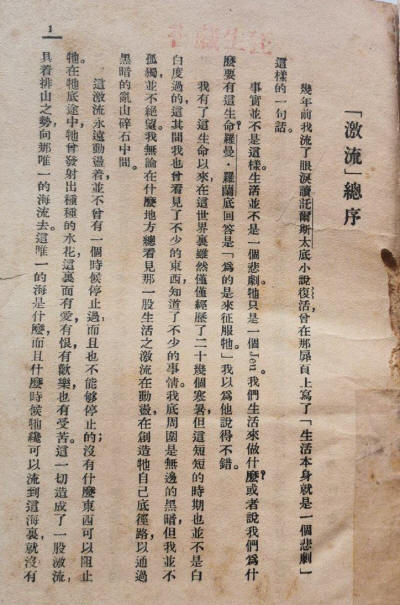 「激流」總序
幾年前我流了眼淚讀託爾斯太底小說復活，曾在那扉頁上寫了「生活本身就是一個悲劇」
這樣的一句話。
事實並不是這樣。生活並不是一個悲劇。牠只是一個Jeu。我們生活來做什麼？或者說我們爲什
麼要有這生命？羅曼·羅蘭底回答是「爲的是來征服牠」我以爲他說得不錯。
我有了這生命以來，在這世界裏雖然僅僅經歷了二十幾個寒暑，但這短短的時期也並不是白
白度過的。這其間我也曾看見了不少的東西，知道了不少的事情。我底周圍是無邊的黑暗，但我並不
孤獨，並不絕望。我無論在什麼地方總看見那一股生活之激流在動盪，在創造牠自己底徑路，以通過
黑暗的亂山碎石中間。
這激流永遠動盪着，並不曾有一個時候停止過，而且也不能夠停止的；沒有什麼東西可以阻止
牠。在牠底途中，牠曾發射出種種的水花，這裏面有愛，有恨，有歡樂，也有受苦。這一切造成了一股激流，
具着排山之勢，向那唯一的海流去。這唯一的海是什麼，而且什麼時候牠纔可以流到這海裏，就沒有
1